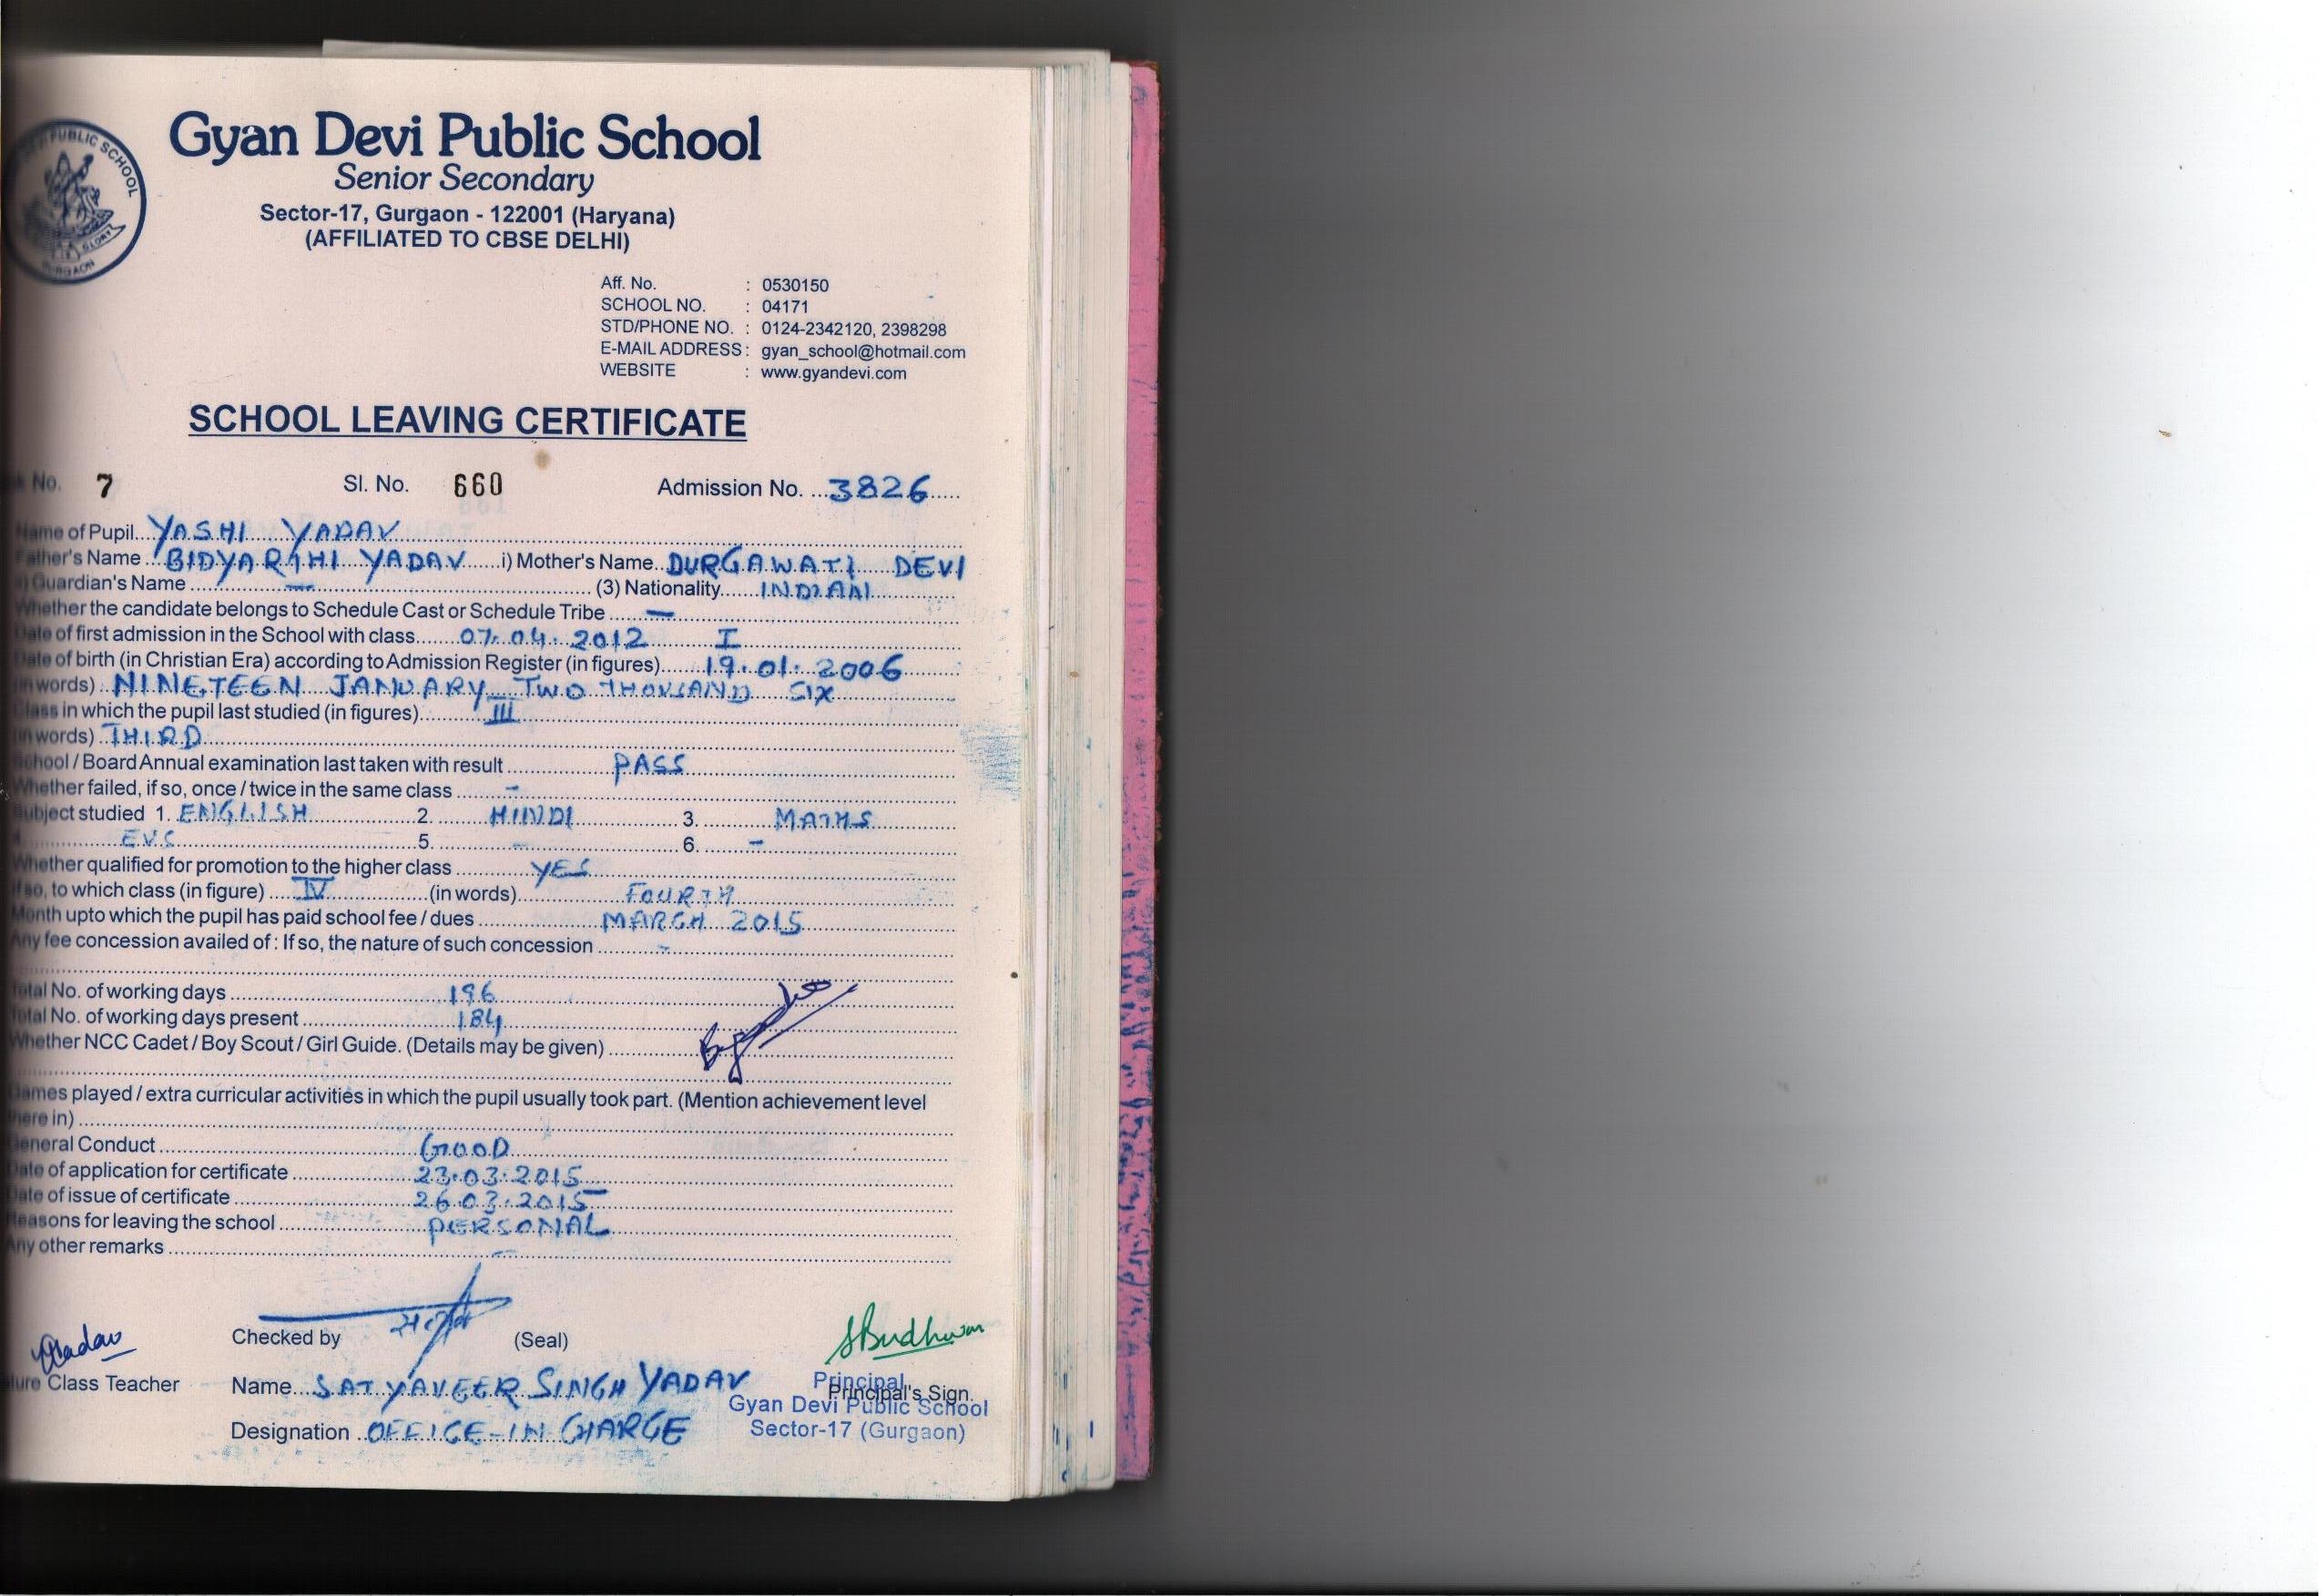 PUBLIC SCHOOL
GLORY
GURGAON
Gyan Devi Public School
Senior Secondary
Sector-17, Gurgaon - 122001 (Haryana)
(AFFILIATED TO CBSE DELHI)
Aff. No. : 0530150
SCHOOL NO. : 04171
STD/PHONE NO. : 0124-2342120, 2398298
E-MAIL ADDRESS : gyan_school@hotmail.com
WEBSITE : www.gyandevi.com
SCHOOL LEAVING CERTIFICATE
No. 7 Sl. No. 660 Admission No. ...3826.....
Name of Pupil...YASHI YADAV
Father's Name ...BIDYARTHI YADAV......i) Mother's Name...DURGAWATI DEVI
Guardian's Name ......—...... (3) Nationality......INDIAN
Whether the candidate belongs to Schedule Cast or Schedule Tribe ......—
Date of first admission in the School with class......07.04.2012 I
Date of birth (in Christian Era) according to Admission Register (in figures)......19.01.2006
(in words) NINETEEN JANUARY TWO THOUSAND SIX
Class in which the pupil last studied (in figures)......III
(in words) THIRD
School / Board Annual examination last taken with result ......PASS
Whether failed, if so, once / twice in the same class ......-
Subject studied 1. ENGLISH 2. HINDI 3. MATHS
EVS 5. - 6. -
Whether qualified for promotion to the higher class ......YES
If so, to which class (in figure) ....IV......(in words)......FOURTH
Month upto which the pupil has paid school fee / dues ......MARCH 2015
Any fee concession availed of : If so, the nature of such concession ......-
Total No. of working days ......196
Total No. of working days present ......184
Whether NCC Cadet / Boy Scout / Girl Guide. (Details may be given) ......
Games played / extra curricular activities in which the pupil usually took part. (Mention achievement level
here in) ......
General Conduct ......GOOD
Date of application for certificate ......23.03.2015
Date of issue of certificate ......26.03.2015
Reasons for leaving the school ......PERSONAL
Any other remarks ......-
Yadav Checked by (Seal) SBudhwar
Class Teacher Name...SATYAVEER SINGH YADAV Principal's Sign.
Principal
Gyan Devi Public School
Designation ..OFFICE-IN CHARGE Sector-17 (Gurgaon)